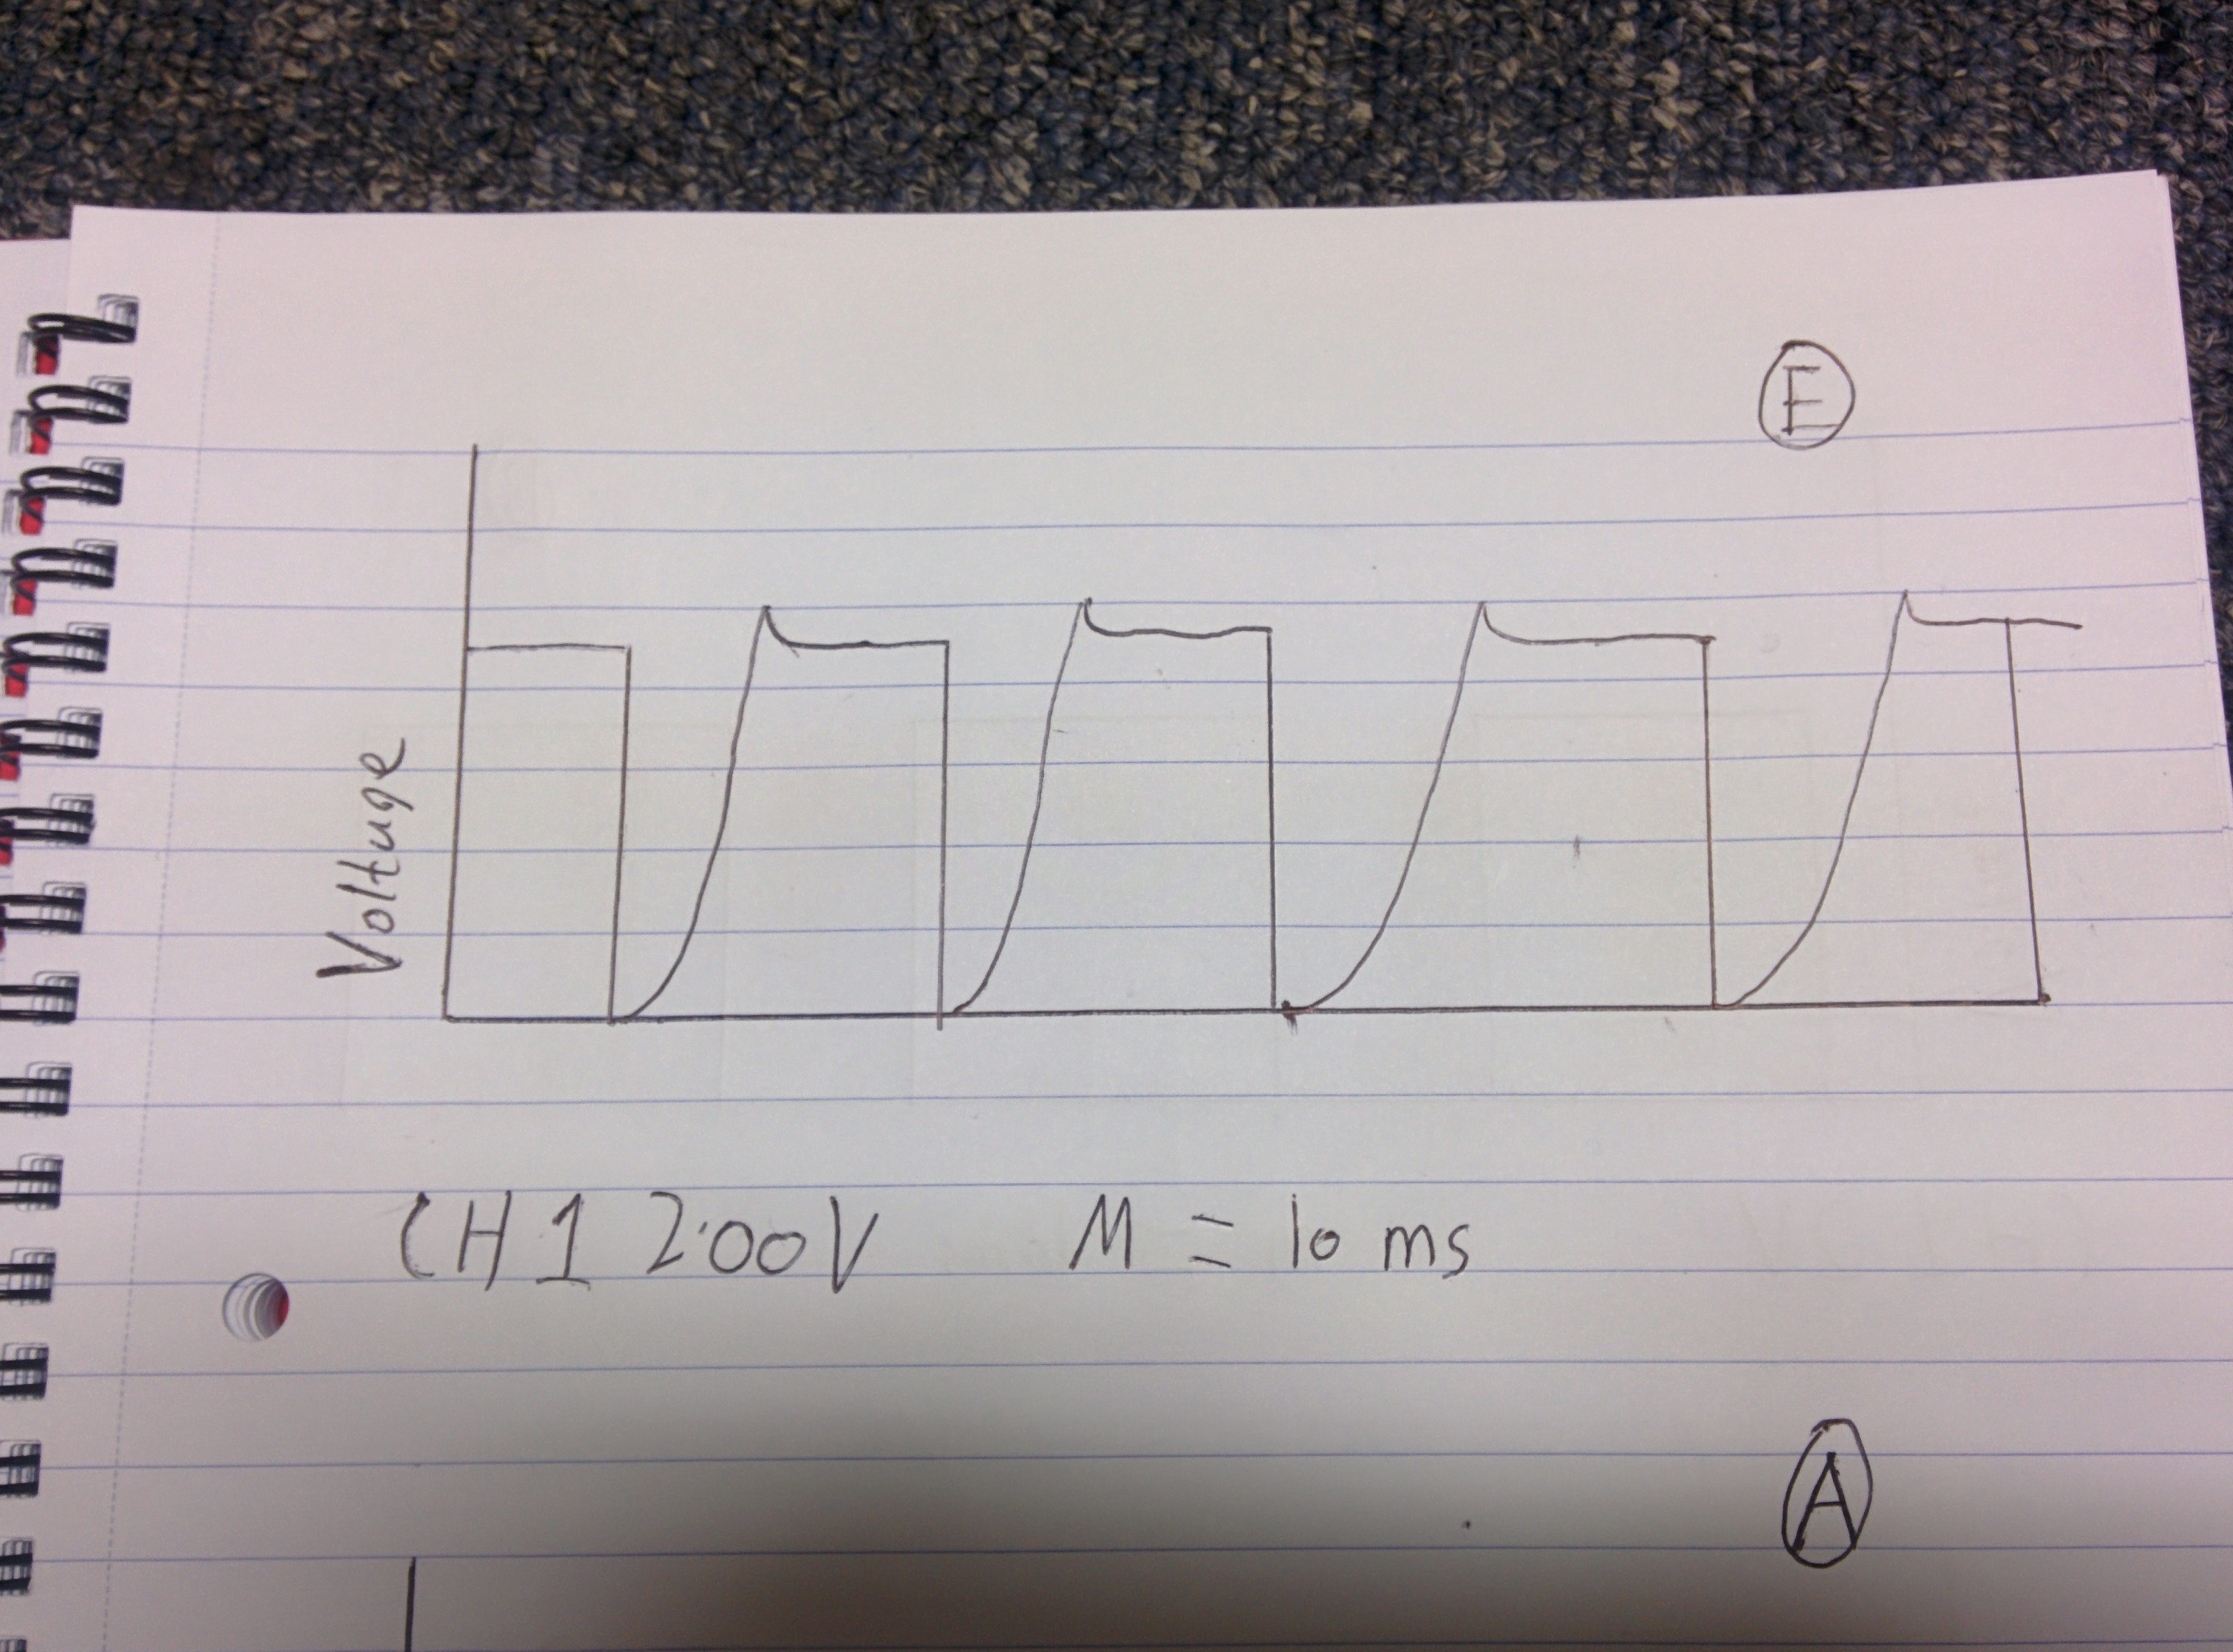 E
Voltuge
CH 1 2.00V M = 10 ms
A